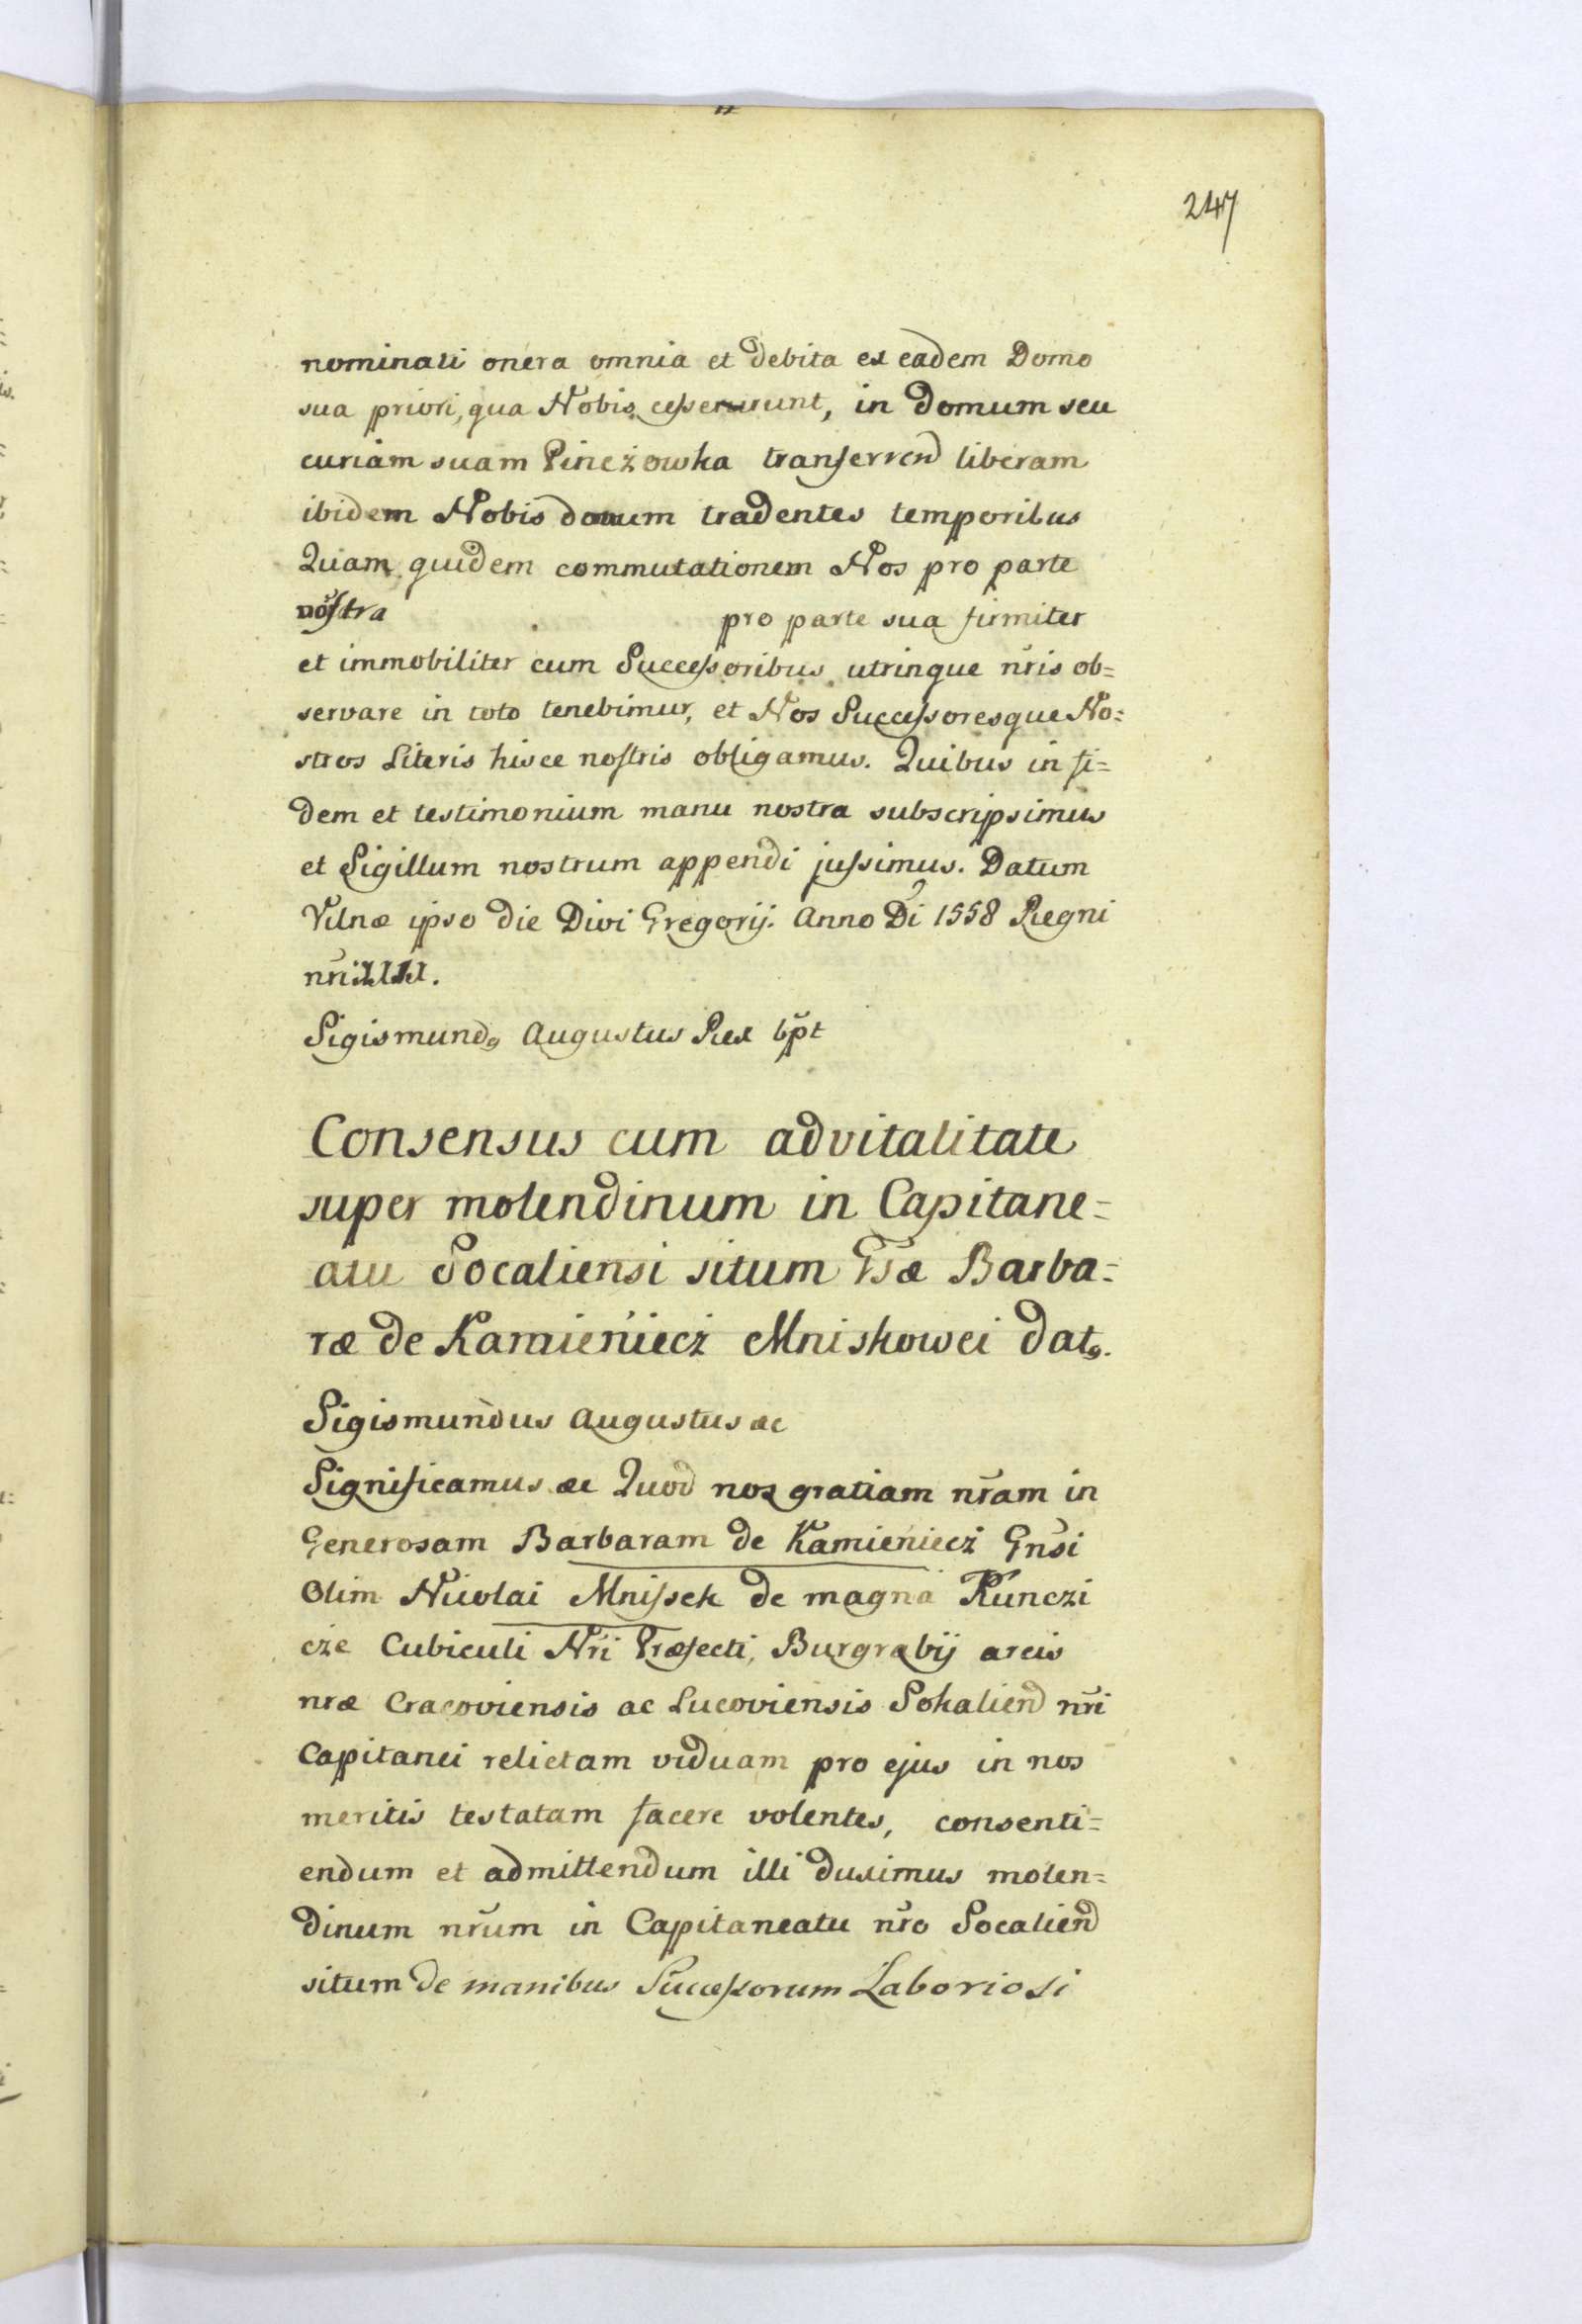 247
nominati onera omnia et debita ex eadem Domo
sua priori, qua Nobis cesserunt, in domum seu
curiam suam Pinczowka transferrend liberam
ibidem Nobis domum tradentes temporibus
Quam quidem commutationem Nos pro parte
nostra pro parte sua firmiter
et immobiliter cum Successoribus utrinque nris ob=
servare in toto tenebimur, et Nos Successoresque No=
stros Literis hisce nostris obligamus. Quibus in fi=
dem et testimonium manu nostra subscripsimus
et Sigillum nostrum appendi jussimus. Datum
Vilnæ ipso die Divi Gregorij. Anno Di 1558 Regni
nri
Sigismund9 Augustus Rex
Consensus cum advitalitate
super molendinum in Capitane=
atu Socaliensi situm Gsæ Barba=
ræ de Kamieńiecz Mniskowei dat9.
Sigismundus Augustus ac
Significamus ac Quod nos gratiam nram in
Generosam Barbaram de Kamieńiecz Gnsi
Olim Nicolai Mnissek de magna Kunczi
cze Cubiculi Nri Præfecti, Burgrabij arcis
nræ Cracoviensis ac Lucoviensis Sokaliend nri
Capitanei relictam viduam pro ejus in nos
meritis testatam facere volentes, consenti=
endum et admittendum illi duximus molen=
dinum nrum in Capitaneatu nro Socaliend
situm de manibus Successorum Laboriosi